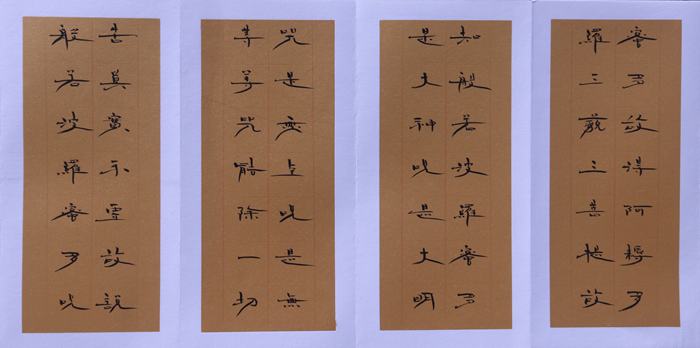 蜜多故得阿耨多
羅三藐三菩提故
知般若波羅蜜多
是大神呪是大明
咒是无上呪是無
等等呪能除一切
苦真實不虛故說
般若波羅蜜多呪